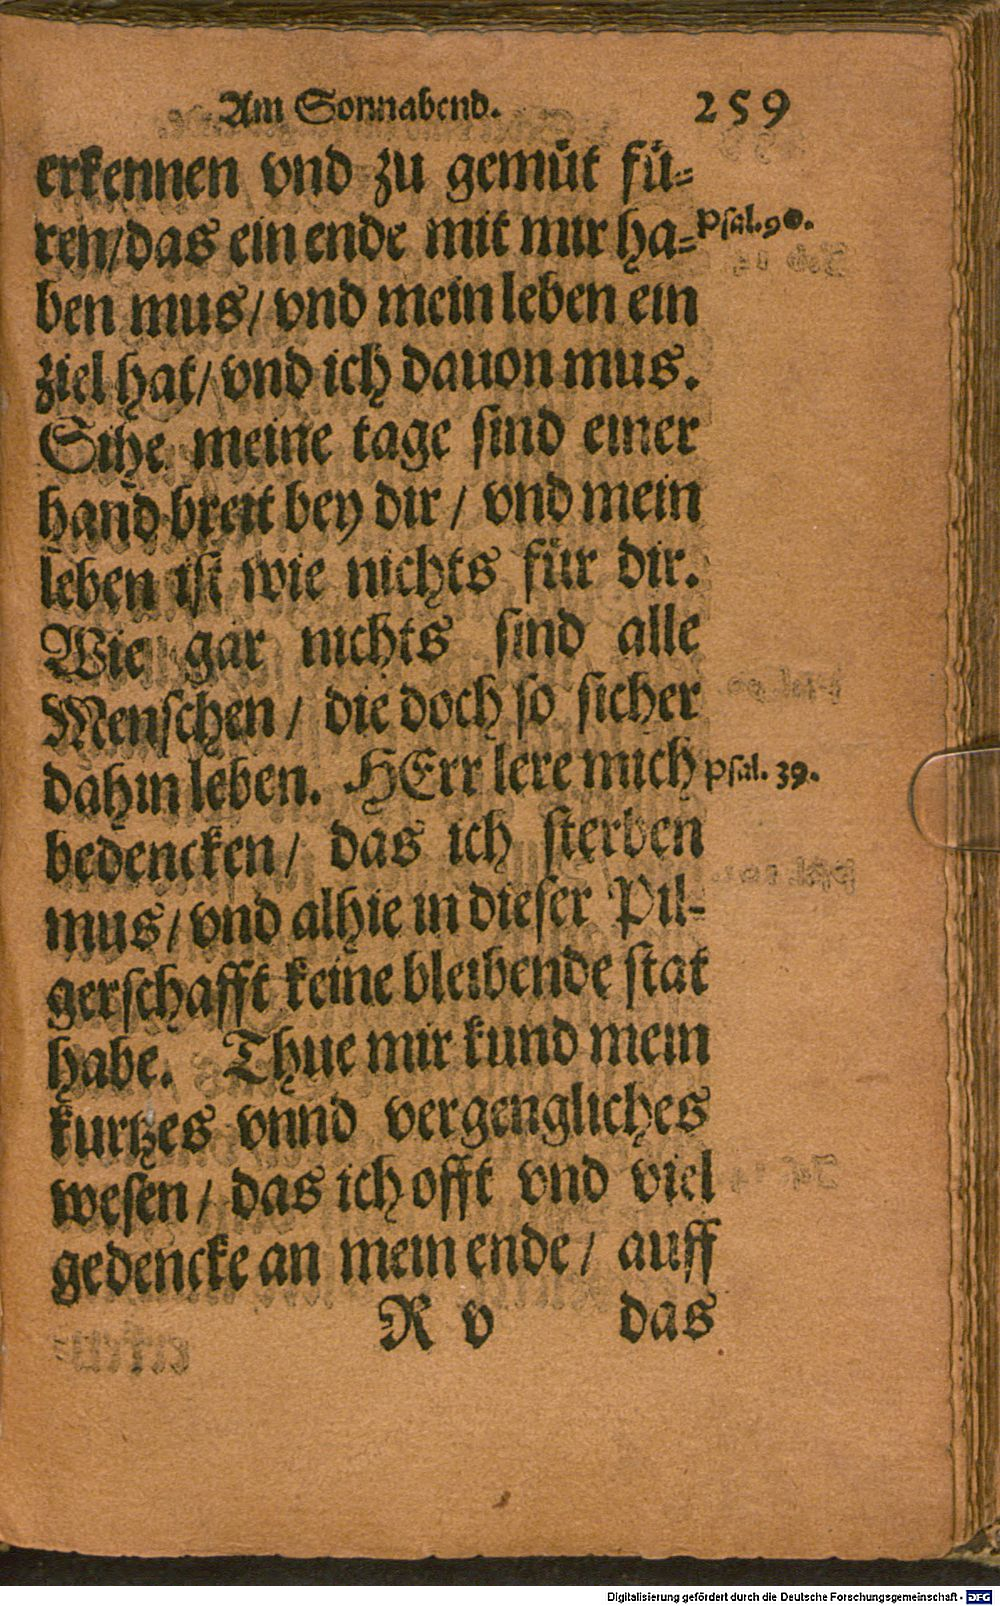 Am Sonnabend. 259
erkennen vnd zu gemüt fü-
ren/das ein ende mit mir ha-
Psal. 90.
ben mus/ vnd mein leben ein
ziel hat/ vnd ich dauon mus.
Sihe meine tage sind einer
hand breit bey dir / vnd mein
leben ist wie nichts für dir.
Wie gar nichts sind alle
Menschen / die doch so sicher
dahin leben. HErr lere mich
Psal. 39.
bedencken / das ich sterben
mus / vnd alhie in dieser Pil-
gerschafft keine bleibende stat
habe. Thue mir kund mein
kurtzes vnnd vergengliches
wesen / das ich offt vnd viel
gedencke an mein ende / auff
R v das
Digitalisierung gefördert durch die Deutsche Forschungsgemeinschaft - DFG